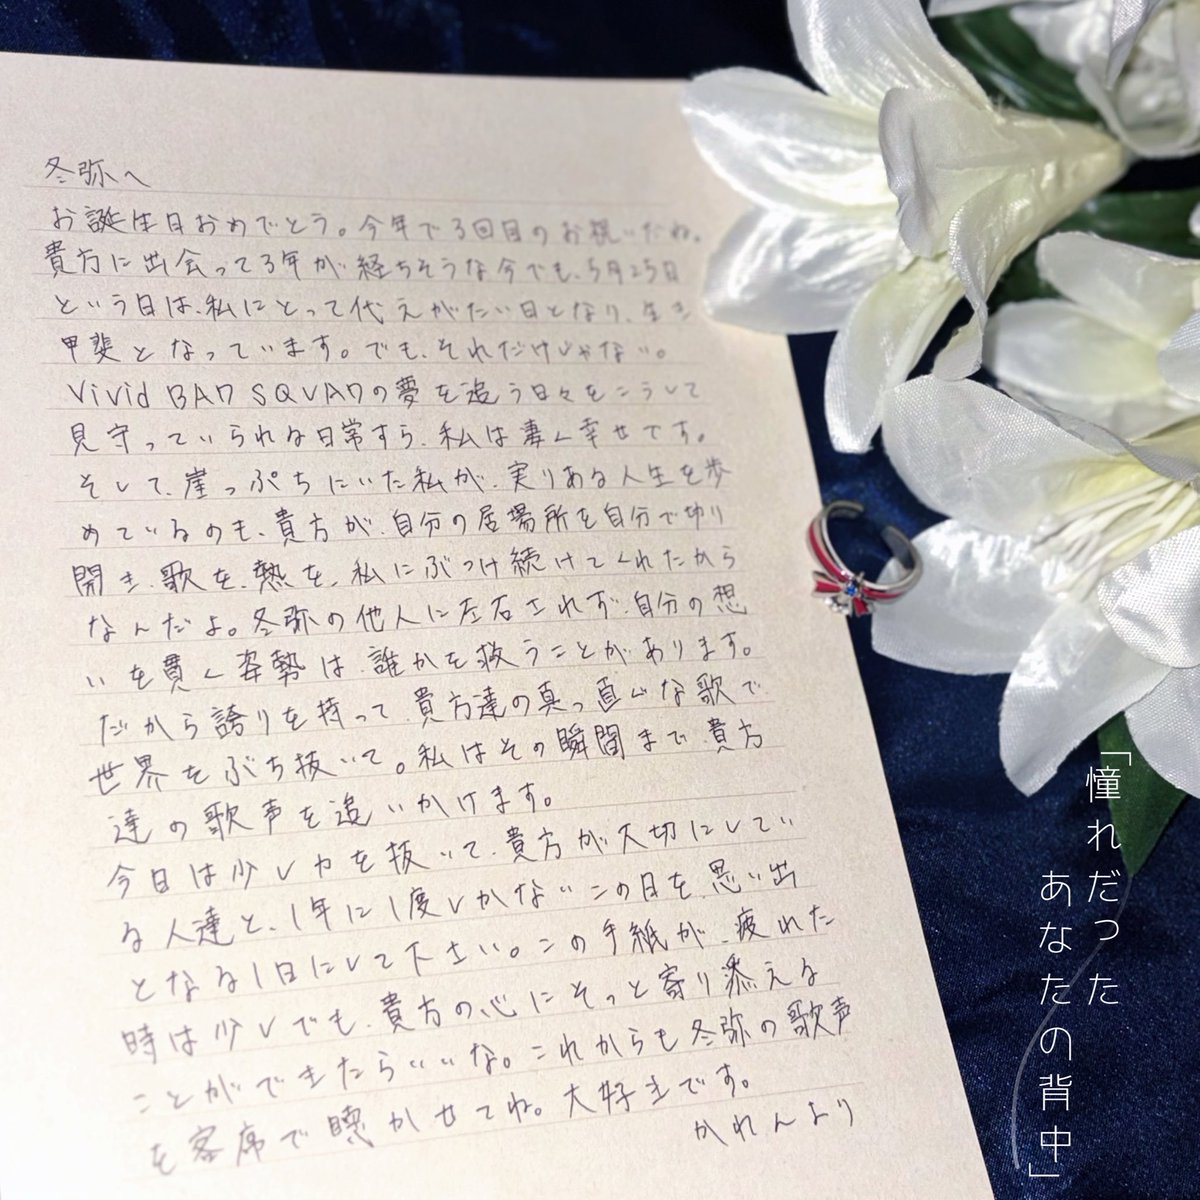 冬弥へ
お誕生日おめでとう。今年で3回目のお祝いだね。
貴方に出会って3年が経ちそうな今でも、5月25日
という日は、私にとって代えがたい日となり、生き
甲斐となっています。でも、それだけじゃない。
Vivid BAD SQUADの夢を追う日々をこうして
見守っていられる日常すら、私は凄く幸せです。
そして、崖っぷちにいた私が、実りある人生を歩
めているのも、貴方が、自分の居場所を自分で切り
開き、歌を、熱を、私にぶつけ続けてくれたから
なんだよ。冬弥の他人に左右されず、自分の想
いを貫く姿勢は、誰かを救うことがあります。
だから誇りを持って、貴方達の真っ直ぐな歌で
世界をぶち抜いて。私はその瞬間まで、貴方
達の歌声を追いかけます。
今日は少し力を抜いて、貴方が大切にしてい
る人達と、1年に1度しかないこの日を、思い出
となる1日にして下さい。この手紙が、疲れた
時は少しでも、貴方の心にそっと寄り添える
ことができたらいいな。これからも冬弥の歌声
を客席で聴かせてね。大好きです。
かれんより
「憧れだった
あなたの背中」